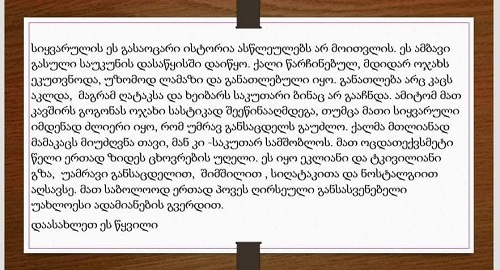 სიყვარულის ეს გასაოცარი ისტორია ასწლეულებს არ მოითვლის. ეს ამბავი
გასული საუკუნის დასაწყისში დაიწყო. ქალი წარჩინებულ, მდიდარ ოჯახს
ეკუთვნოდა, უზომოდ ლამაზი და განათლებული იყო. განათლება არც კაცს
აკლდა, მაგრამ ღატაკსა და ხეიბარს საკუთარი ბინაც არ გააჩნდა. ამიტომ მათ
კავშირს გოგონას ოჯახი სასტიკად შეეწინააღმდეგა, თუმცა მათი სიყვარული
იმდენად ძლიერი იყო, რომ უმრავ განსაცდელს გაუძლო. ქალმა მთლიანად
მამაკაცს მიუძღვნა თავი, მან კი -საკუთარ სამშობლოს. მათ ოცდათექვსმეტი
წელი ერთად ზიდეს ცხოვრების უღელი. ეს იყო ეკლიანი და ტკივილიანი
გზა, უამრავი განსაცდელით, შიმშილით , სიღატაკითა და ნოსტალგიით
აღსავსე. მათ საბოლოოდ ერთად პოვეს ღირსეული განსასვენებელი
უახლოესი ადამიანების გვერდით.
დაასახლეთ ეს წყვილი